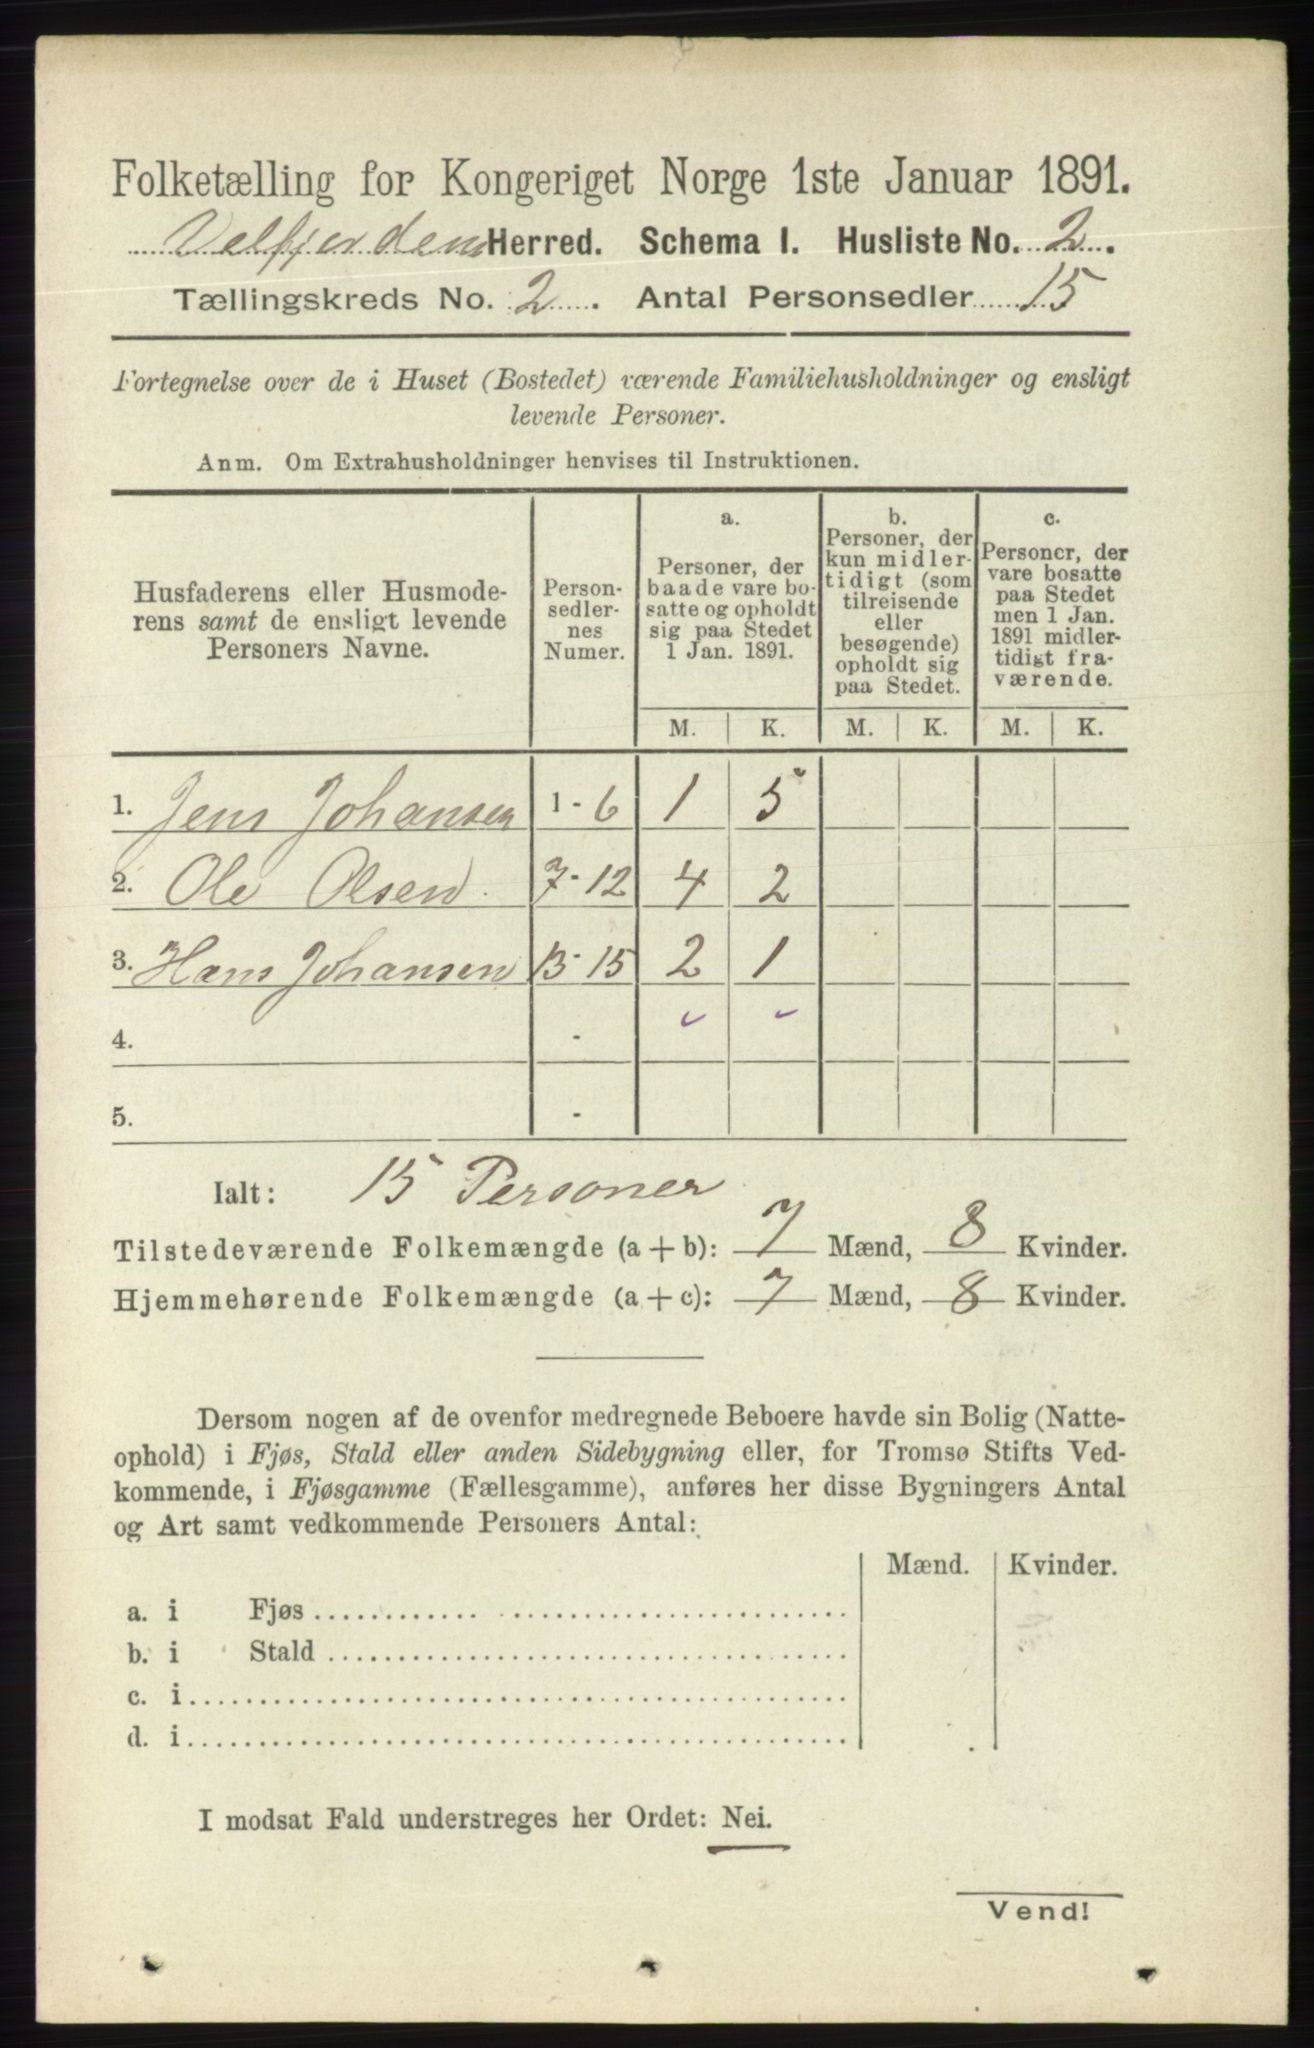 Folketælling for Kongeriget Norge 1ste Januar 1891.
Velfjorden Herred. Schema I. Husliste No. 2.
Tællingskreds No. 2. Antal Personsedler 15
Fortegnelse over de i Huset (Bostedet) værende Familiehusholdninger og ensligt
levende Personer.
Anm. Om Extrahusholdninger henvises til Instruktionen.
Husfaderens eller Husmode-
rens samt de ensligt levende
Personers Navne.
Person-
sedler-
nes
Numer.
a.
Personer, der
baade vare bo-
satte og opholdt
sig paa Stedet
1 Jan. 1891.
b.
Personer, der
kun midler-
tidigt (som
tilreisende
eller
besøgende)
opholdt sig
paa Stedet.
c.
Personer, der
vare bosatte
paa Stedet
men 1 Jan.
1891 midler-
tidigt fra-
værende.
M. K. M. K. M. K.
1. Jens Johansen 1-6 1 5
2. Ole Olsen 7-12 4 2
3. Hans Johansen 13-15 2 1
4. -
5. -
Ialt: 15 Personer
Tilstedeværende Folkemængde (a+b): 7 Mænd, 8 Kvinder.
Hjemmehørende Folkemængde (a+c): 7 Mænd, 8 Kvinder.
Dersom nogen af de ovenfor medregnede Beboere havde sin Bolig (Natte-
ophold) i Fjøs, Stald eller anden Sidebygning eller, for Tromsø Stifts Ved-
kommende, i Fjøsgamme (Fællesgamme), anføres her disse Bygningers Antal
og Art samt vedkommende Personers Antal:
Mænd. Kvinder.
a. i Fjøs
b. i Stald
c. i
d. i
I modsat Fald understreges her Ordet: Nei.
Vend!